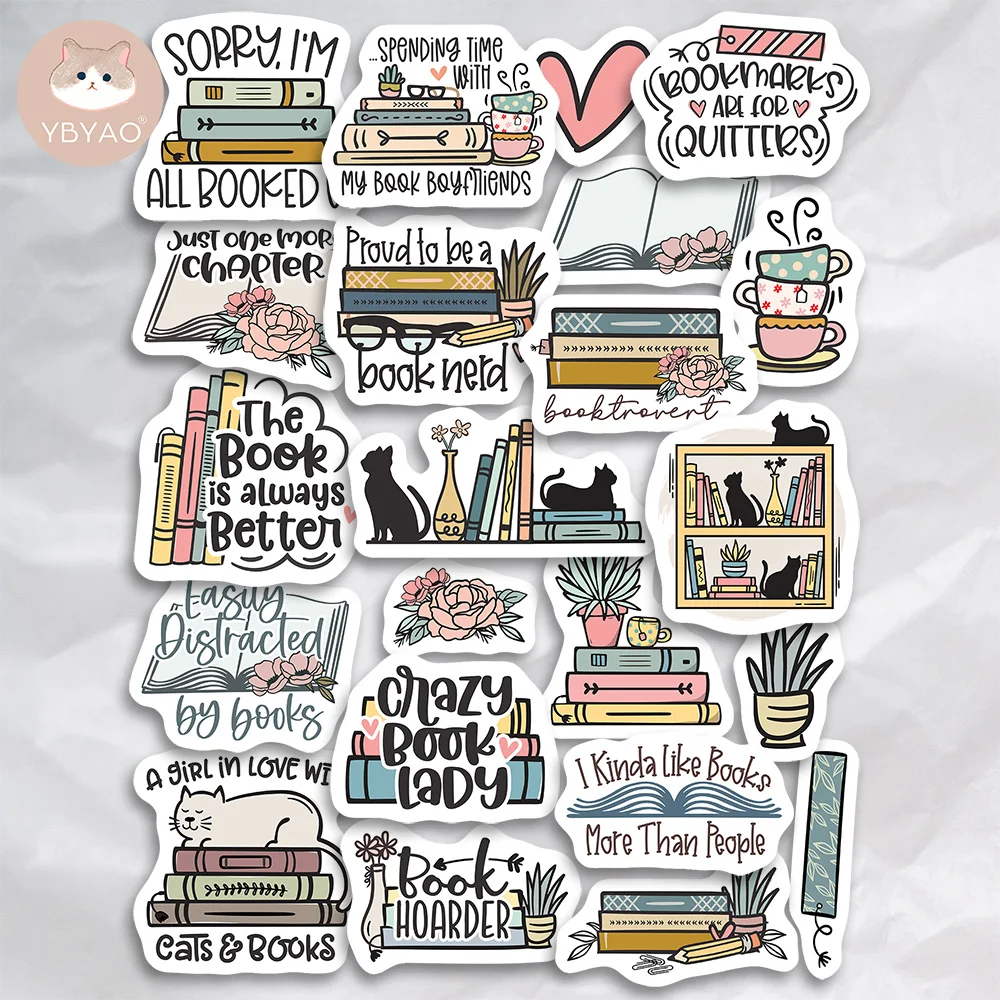 YBYAO®
SORRY, I'M
ALL BOOKED
...SPENDING TIME
WITH
MY BOOK BOYFRIENDS
BOOKMARKS
ARE FOR
QUITTERS
Just one more
CHAPTER
Proud to be a
book nerd
booktrovert
The
Book
is always
Better
Easily
Distracted
by books
CRAZY
BOOK
LADY
I Kinda Like Books
More Than People
A GIRL IN LOVE WI
CATS & BOOKS
Book
HOARDER